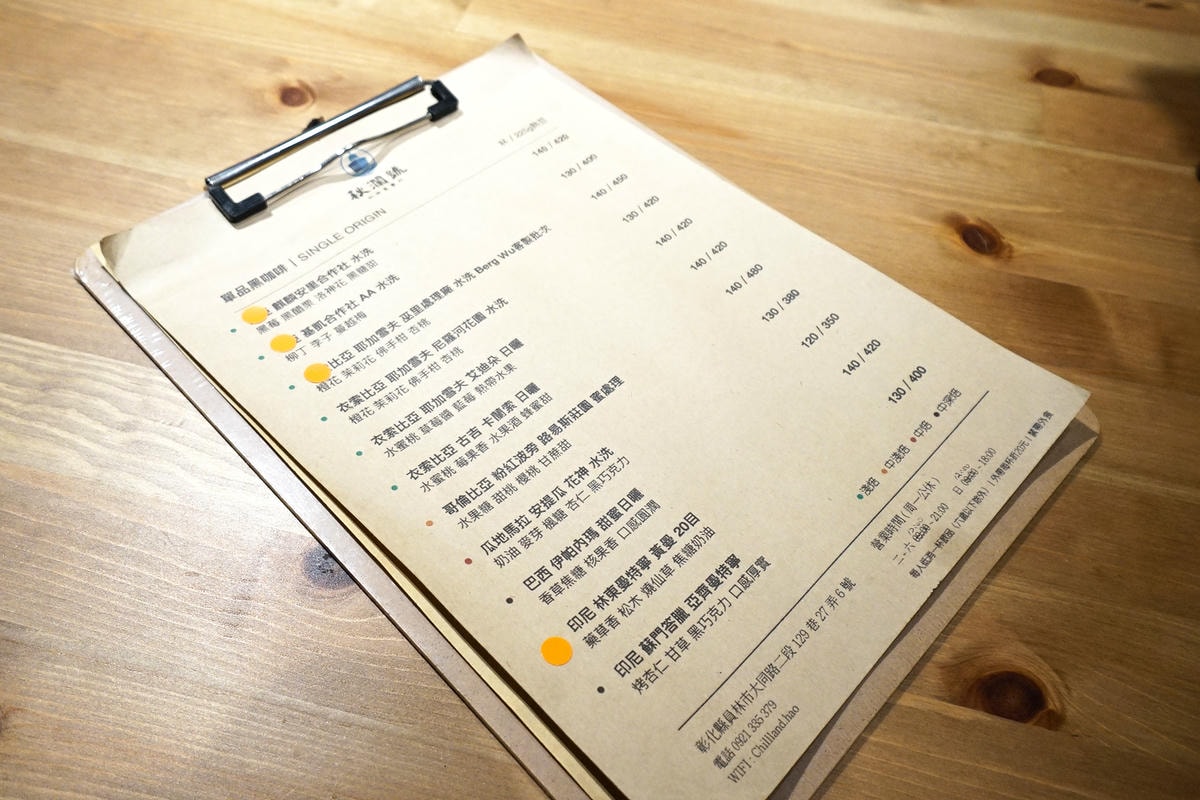 秋潤號
杯 / 225g熟豆
單品黑咖啡 | SINGLE ORIGIN
麒麟安里合作社 水洗 140 / 420
黑莓 黑醋栗 洛神花 黑糖甜
基凱合作社 AA 水洗 130 / 400
柳丁 李子 蔓越梅
比亞 耶加雪夫 巫里處理廠 水洗 Berg Wu客製批次 140 / 450
橙花 茉莉花 佛手柑 杏桃
衣索比亞 耶加雪夫 尼羅河花園 水洗 130 / 420
橙花 茉莉花 佛手柑 杏桃
衣索比亞 耶加雪夫 艾迪朵 日曬 140 / 420
水蜜桃 草莓醬 藍莓 熱帶水果
衣索比亞 古吉 卡蘭索 日曬 140 / 420
水蜜桃 莓果香 水果酒 蜂蜜甜
哥倫比亞 粉紅波旁 路易斯莊園 蜜處理 140 / 480
水果糖 甜桃 櫻桃 甘蔗甜
瓜地馬拉 安提瓜 花神 水洗 130 / 380
奶油 麥芽 楓糖 杏仁 黑巧克力
巴西 伊帕內瑪 甜蜜日曬 120 / 350
香草焦糖 核果香 口感圓潤
印尼 林東曼特寧 黃曼 20目 140 / 420
藥草香 松木 燒仙草 焦糖奶油
印尼 蘇門答臘 亞齊曼特寧 130 / 400
烤杏仁 甘草 黑巧克力 口感厚實
淺焙 中淺焙 中焙 中深焙
彰化縣員林市大同路二段 129 巷 27 弄 6 號
電話 0921 335 379
WIFI : Chillland.hao
營業時間 ( 周一公休 )
二 - 六 09:00 - 21:00 日 09:00 - 18:00
每人低消一杯飲品 (六歲以下除外) | 外帶自備杯折20元 | 禁帶外食